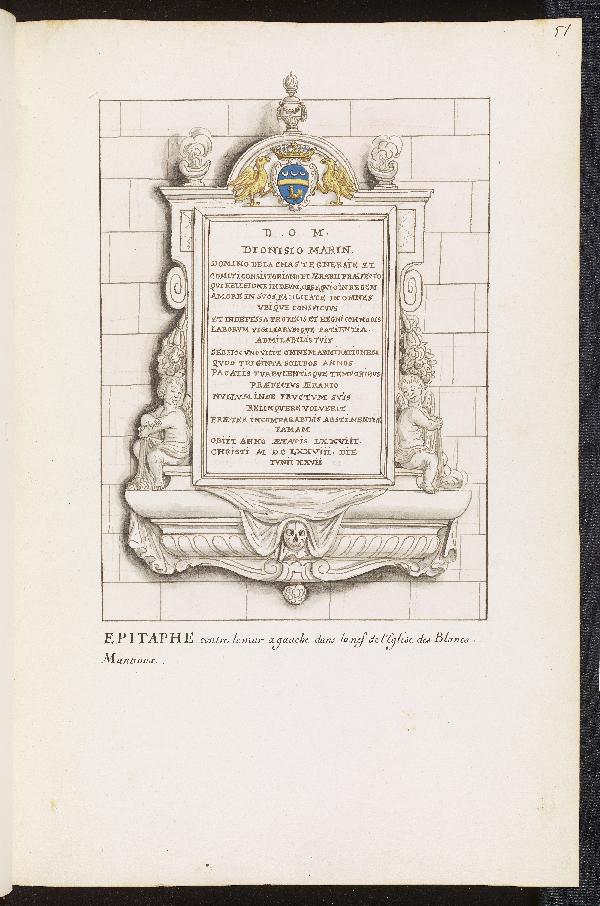 51
D. O. M.
DIONISIO MARIN.
DOMINO DE LA CHASTEGNERAIE ET
COMITI CONSISTORIANO ET ÆRARII PRÆFECTO
QUI RELLIGIONE IN DEUM, OBSEQUIO IN REGEM
AMORE IN SUOS, FACILITATE IN OMNES
UBIQUE CONSPICUUS
ET INDEFESSA PRO REGIS ET REGNI COMMODIS
LABORUM VIGILIARUMQUE PATIENTIA.
ADMIRABILIS FUIT
SED HOC UNO VICIT OMNEM ADMIRATIONEM
QUOD TRIGINTA SOLIDOS ANNOS
PACATIS TURBULENTISQUE TEMPORIBUS
PRÆFECTUS ÆRARIO
NULLUM INDE FRUCTUM SUIS
RELINQUERE VOLUERIT
PRÆTER INCOMPARABILIS ABSTINENTIÆ
FAMAM
OBIIT ANNO ÆTATIS LXXVIII.
CHRISTI M DC LXXVIII. DIE
IUNII XXVII
EPITAPHE contre le mur a gauche dans la nef de l'Eglise des Blancs.
Manteaux.